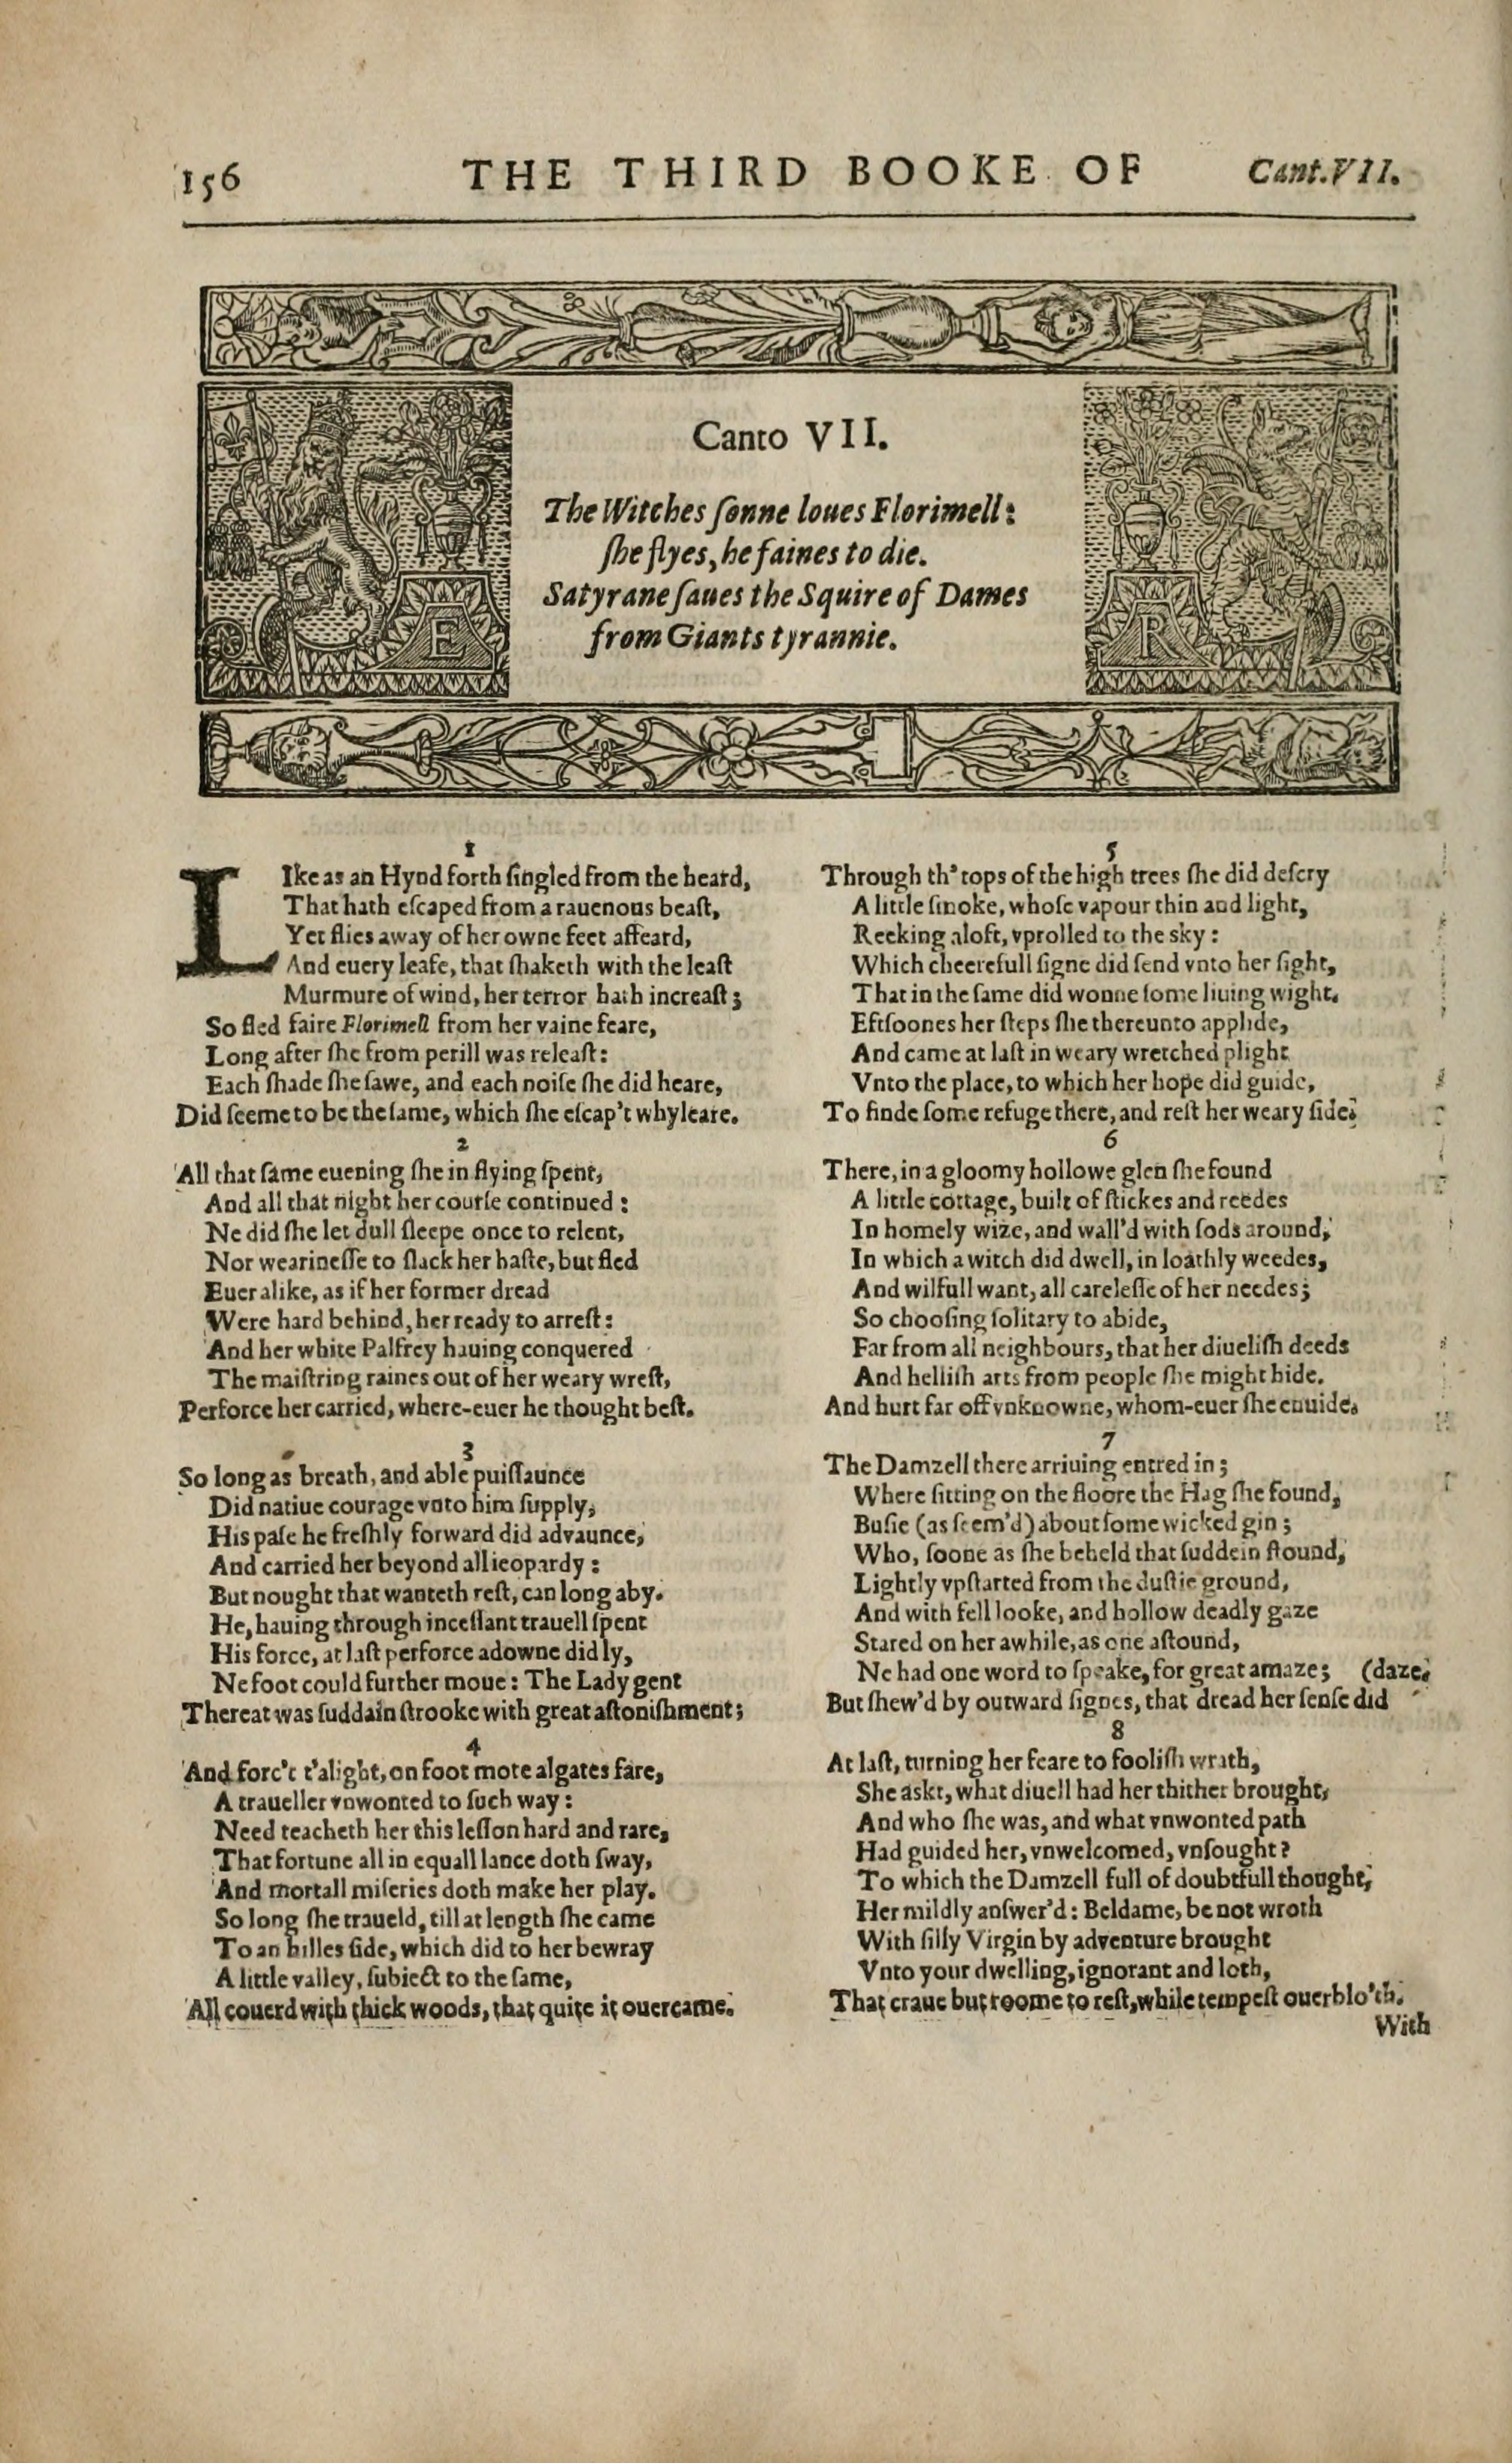 156 THE THIRD BOOKE OF Cant.VII.
Canto VII.
The Witches ſonne loues Florimell:
ſhe flyes, he faines to die.
Satyrane ſaues the Squire of Dames
from Giants tyrannie.
E
R
1
LIke as an Hynd forth ſingled from the heard,
That hath eſcaped from a rauenous beaſt,
Yet flies away of her owne feet affeard,
And euery leafe, that ſhaketh with the leaſt
Murmure of wind, her terror hath increaſt;
So fled faire Florimell from her vaine feare,
Long after ſhe from perill was releaſt:
Each ſhade ſhe ſawe, and each noiſe ſhe did heare,
Did ſeeme to be the ſame, which ſhe eſcap't whyleare.
2
All that ſame euening ſhe in flying ſpent,
And all that night her courſe continued:
Ne did ſhe let dull ſleepe once to relent,
Nor wearineſſe to ſlack her haſte, but fled
Euer alike, as if her former dread
Were hard behind, her ready to arreſt:
And her white Palfrey hauing conquered
The maiſtring raines out of her weary wreſt,
Perforce her carried, where-euer he thought beſt.
3
So long as breath, and able puiſſaunce
Did natiue courage vnto him ſupply,
His paſe he freſhly forward did advaunce,
And carried her beyond all ieopardy:
But nought that wanteth reſt, can long aby.
He, hauing through inceſſant trauell ſpent
His force, at laſt perforce adowne did ly,
Ne foot could further moue: The Lady gent
Thereat was ſuddain ſtrooke with great aſtoniſhment;
4
And forc't t'alight, on foot mote algates fare,
A traueller vnwonted to ſuch way:
Need teacheth her this leſſon hard and rare,
That fortune all in equall lance doth ſway,
And mortall miſeries doth make her play.
So long ſhe traueld, till at length ſhe came
To an hilles ſide, which did to her bewray
A little valley, ſubiect to the ſame,
All couerd with thick woods, that quite it ouercame.
5
Through th' tops of the high trees ſhe did deſcry
A little ſmoke, whoſe vapour thin and light,
Reeking aloft, vprolled to the sky:
Which cheerefull ſigne did ſend vnto her ſight,
That in the ſame did wonne ſome liuing wight.
Eftſoones her ſteps ſhe thereunto applide,
And came at laſt in weary wretched plight
Vnto the place, to which her hope did guide,
To finde ſome refuge there, and reſt her weary ſide.
6
There, in a gloomy hollowe glen ſhe found
A little cottage, built of ſtickes and reedes
In homely wize, and wall'd with ſods around,
In which a witch did dwell, in loathly weedes,
And wilfull want, all careleſſe of her needes;
So chooſing ſolitary to abide,
Far from all neighbours, that her diueliſh deeds
And helliſh arts from people ſhe might hide.
And hurt far off vnknowne, whom-euer ſhe enuide.
7
The Damzell there arriuing entred in;
Where ſitting on the floore the Hag ſhe found,
Buſie (as ſeem'd) about ſome wicked gin;
Who, ſoone as ſhe beheld that ſuddein ſtound,
Lightly vpſtarted from the duſtie ground,
And with fell looke, and hollow deadly gaze
Stared on her awhile, as one aſtound,
Ne had one word to ſpeake, for great amaze; (daze.
But ſhew'd by outward ſignes, that dread her ſenſe did
8
At laſt, turning her feare to fooliſh wrath,
She askt, what diuell had her thither brought,
And who ſhe was, and what vnwonted path
Had guided her, vnwelcomed, vnſought?
To which the Damzell full of doubtfull thought,
Her mildly anſwer'd: Beldame, be not wroth
With ſilly Virgin by adventure brought
Vnto your dwelling, ignorant and loth,
That craue but roome to reſt, while tempeſt ouerblo'th.
With